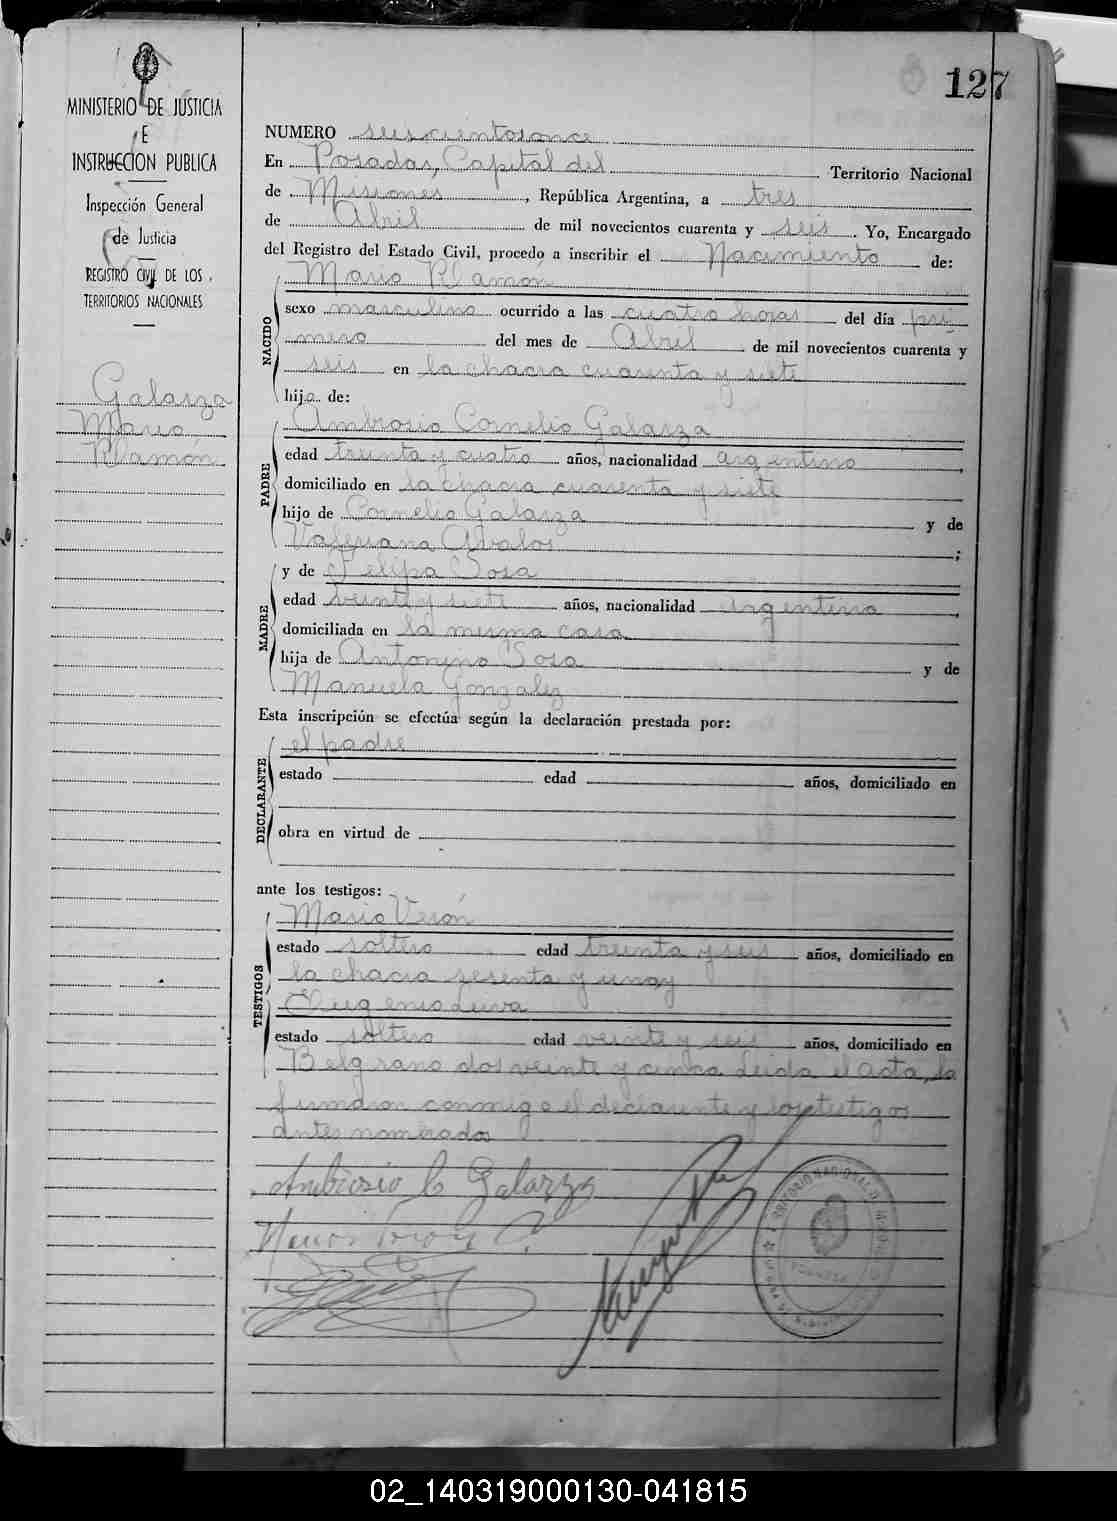 127
MINISTERIO DE JUSTICIA
E
INSTRUCCION PUBLICA
Inspección General
de Justicia
REGISTRO CIVIL DE LOS
TERRITORIOS NACIONALES
Galarza
Mario
Ramón
NUMERO seiscientosonce
En Posadas, Capital del Territorio Nacional
de Misiones, República Argentina, a tres
de Abril de mil novecientos cuarenta y seis. Yo, Encargado
del Registro del Estado Civil, procedo a inscribir el Nacimiento de:
Mario Ramón
NACIDO
sexo masculino ocurrido a las cuatro horas del día pri
mero del mes de Abril de mil novecientos cuarenta y
seis en la chacra cuarenta y siete
hijo de:
Ambrosio Cornelio Galarza
PADRE
edad treinta y cuatro años, nacionalidad argentino,
domiciliado en la chacra cuarenta y siete
hijo de Cornelio Galarza y de
Valeriana Avalos;
y de Felipa Sosa
MADRE
edad veinte y siete años, nacionalidad argentina,
domiciliada en la misma casa
hija de Antonino Sosa y de
Manuela Gonzalez
Esta inscripción se efectúa según la declaración prestada por:
el padre
DECLARANTE
estado edad años, domiciliado en
obra en virtud de
ante los testigos:
Mario Verón
TESTIGOS
estado soltero edad treinta y seis años, domiciliado en
la chacra sesenta y uno y
Eugenio Leiva
estado soltero edad veinte y seis años, domiciliado en
Belgrano dos veinte y cinco Leida el acta, la
firmaron conmigo el declarante y los testigos
antes nombrados
Ambrosio C Galarza
02_140319000130-041815